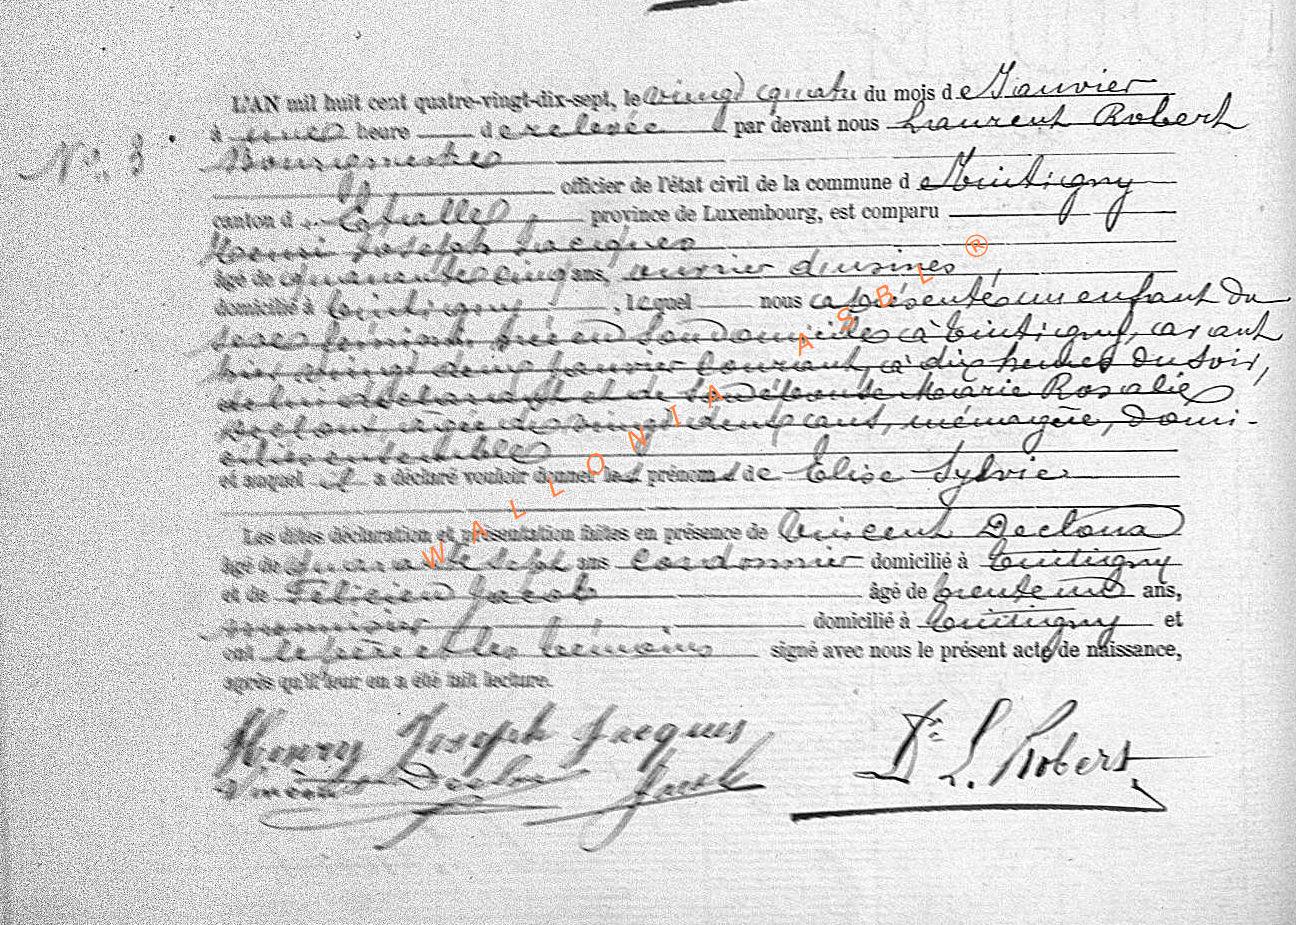 L'AN mil huit cent quatre-vingt-dix-sept, le vingt quatre du mois de Janvier
N° 3
à onze heure de relevée par devant nous Laurent Robert
Bourgmestre
officier de l'état civil de la commune d e Tintigny
canton d' Etalle, province de Luxembourg, est comparu
Henri Joseph Jacques
âgé de quarante cinq ans, ouvrier d'usines,
domicilié à Tintigny, lequel nous a présenté un enfant du
sexe féminin, né en son domicile à Tintigny, avant
hier vingt deux Janvier courant, à dix heures du soir,
de lui déclarant et de son épouse Marie Rosalie
âgée de vingt ans, ménagère, domi-
ciliés ensemble
et auquel il a déclaré vouloir donner les prénoms de Elise Sylvie
Les dites déclaration et présentation faites en présence de Vincent Declona
âgé de quarante sept ans cordonnier domicilié à Tintigny
et de Félicien Jacob âgé de trente ans,
domicilié à Tintigny et
ont le père et les témoins signé avec nous le présent acte de naissance,
après qu'il leur en a été fait lecture.
Henry Joseph Jacques
Dr L. Robert
Vincent Jacob
WALLONIA ASBL ®